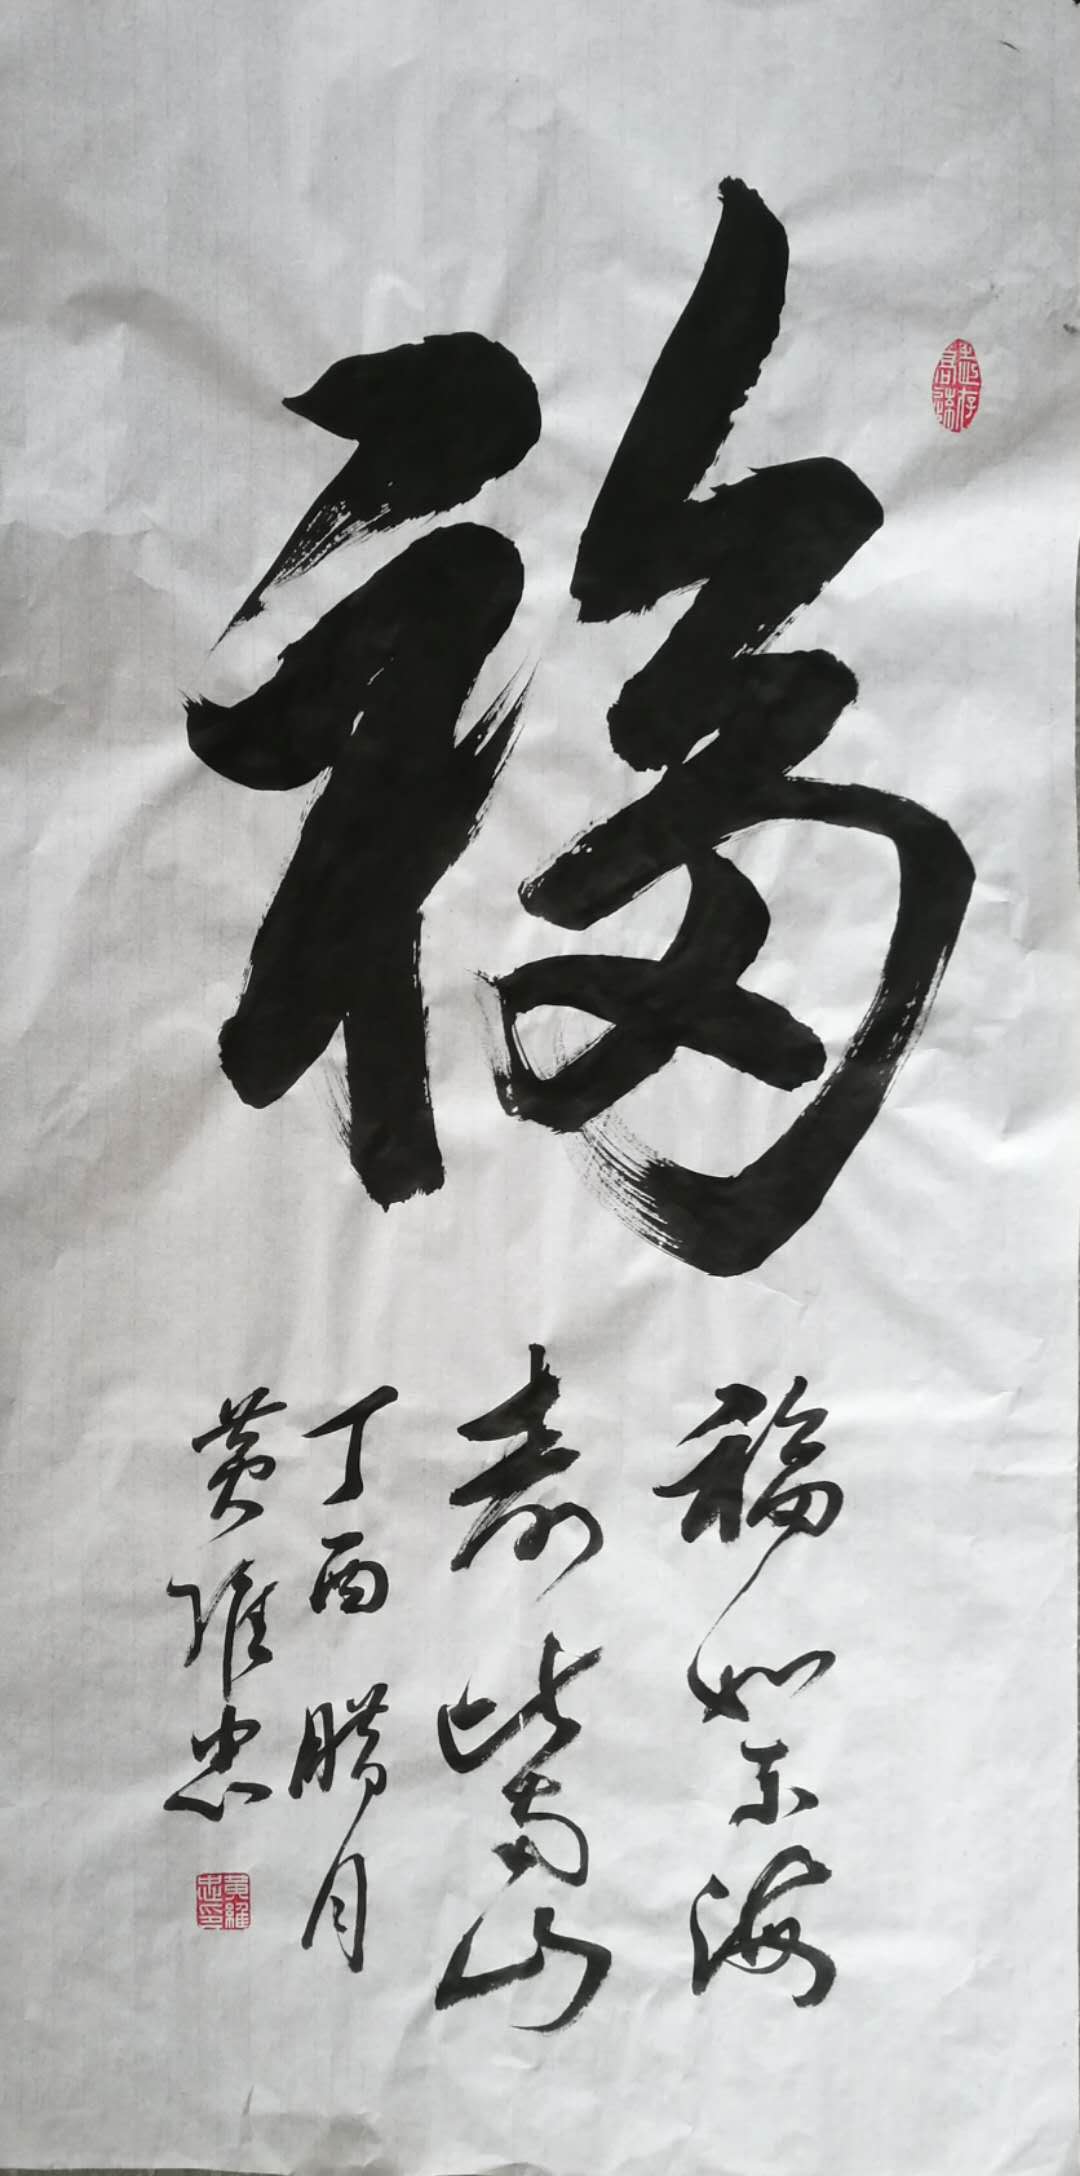 福
福如东海
寿比南山
丁酉腊月
黄维忠
黄維忠印